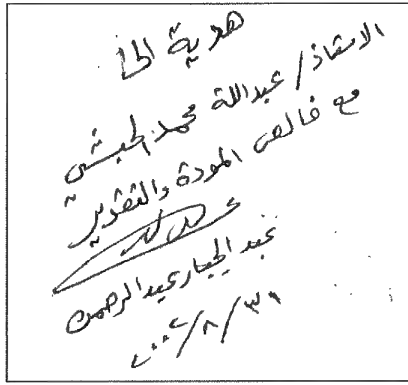 هدية إلى
الاستاذ / عبدالله محمد الحبشي
مع خالص المودة والتقدير
عبد الجبار عبدالرحمن
٢٠٠٢/٨/٣١